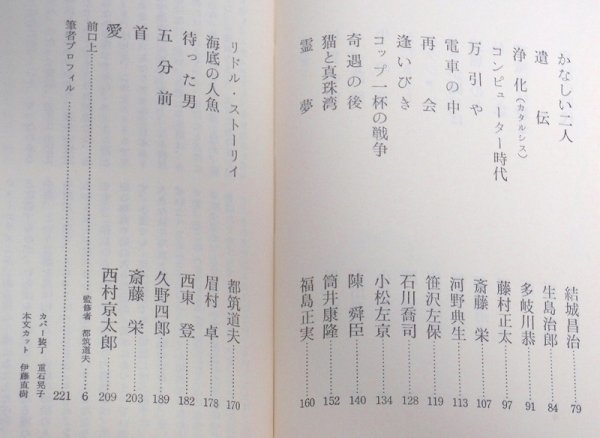 かなしい二人 結城昌治………79
遺伝 生島治郎………84
浄化（カタルシス） 多岐川恭………91
コンピューター時代 藤村正太………97
万引や 斎藤栄………107
電車の中 河野典生………113
再会 笹沢左保………119
逢いびき 石川喬司………128
コップ一杯の戦争 小松左京………134
奇遇の後 陳舜臣………140
猫と真珠湾 筒井康隆………152
霊夢 福島正実………160
リドル・ストーリイ 都筑道夫………170
海底の人魚 眉村卓………178
待った男 西東登………182
五分前 久野四郎………189
首 斎藤栄………203
愛 西村京太郎………209
前口上………監修者 都筑道夫………6
筆者プロフィル………221
カバー装丁 重石晃子
本文カット 伊藤直樹